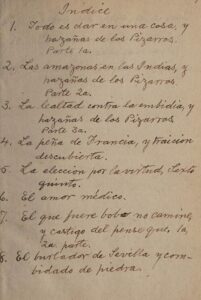 Indice
1. Todo es dar en una cosa, y
hazañas de los Pizarros.
Parte 1a.
2. Las amazonas en las Indias, y
hazañas de los Pizarros.
Parte 2a.
3. La lealtad contra la embidia, y
hazañas de los Pizarros.
Parte 3a.
4. La peña de Francia, y traicion
descubierta.
5. La eleccion por la virtud, Sexto
quinto.
6. El amor médico.
7. El que fuere bobo no camine,
y castigo del pense que, 1a,
2a parte.
8. El burlador de Sevilla y com-
bidado de piedra.